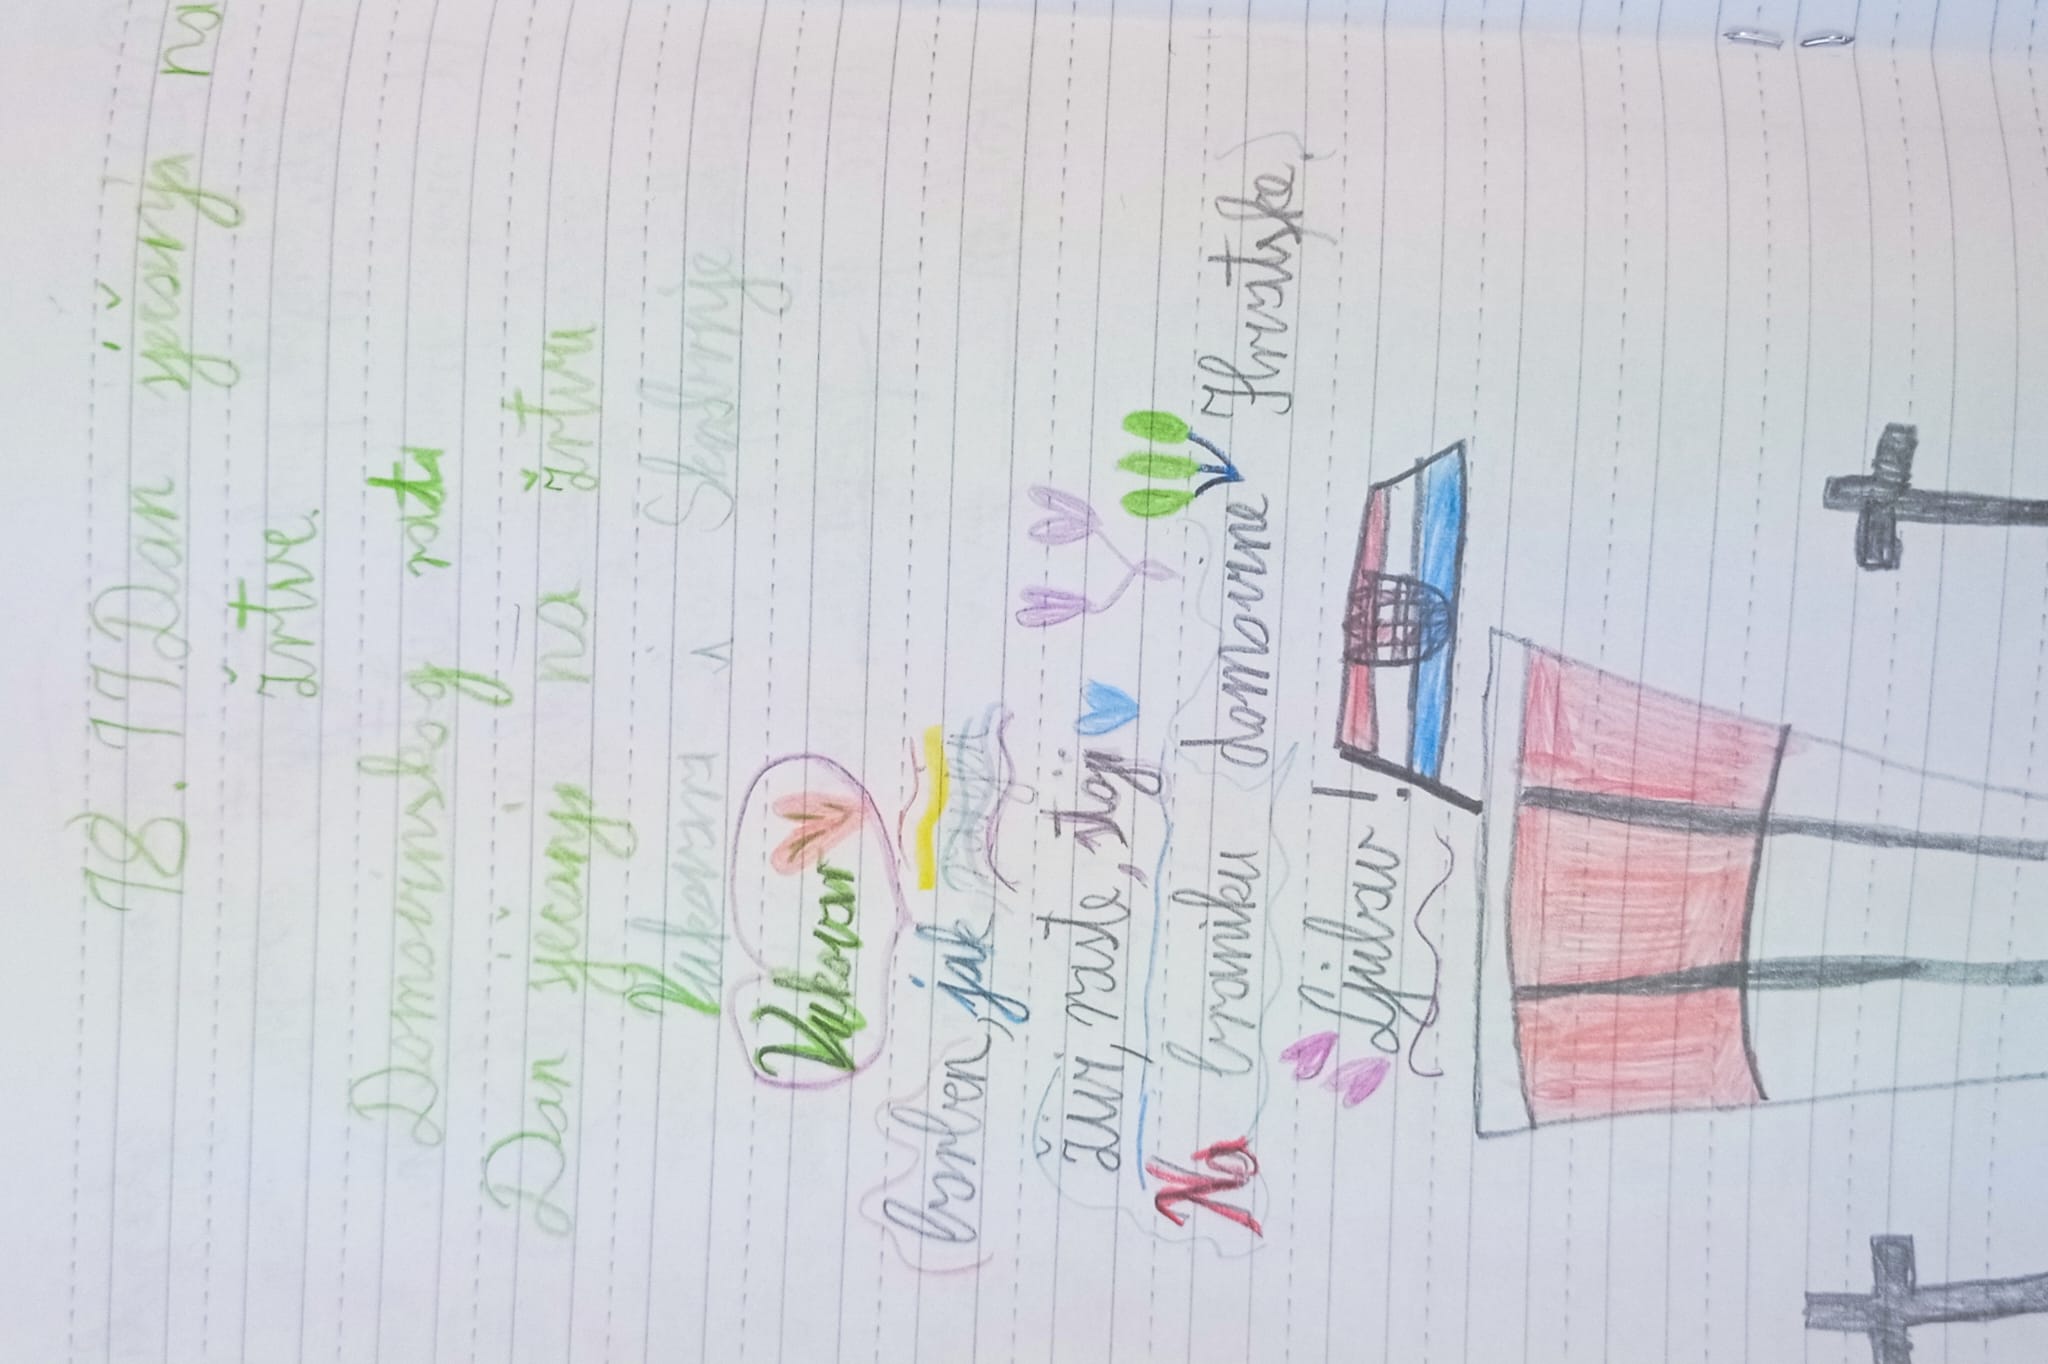 18. 11. Dan sjećanja na
žrtve
Domovinskog rata
Dan sjećanja na žrtvu
Vukovara i Škabrnje
Vukovar
Hrabar, jak
Živi, raste, stoji
Na braniku domovine Hrvatske,
Ljubav!